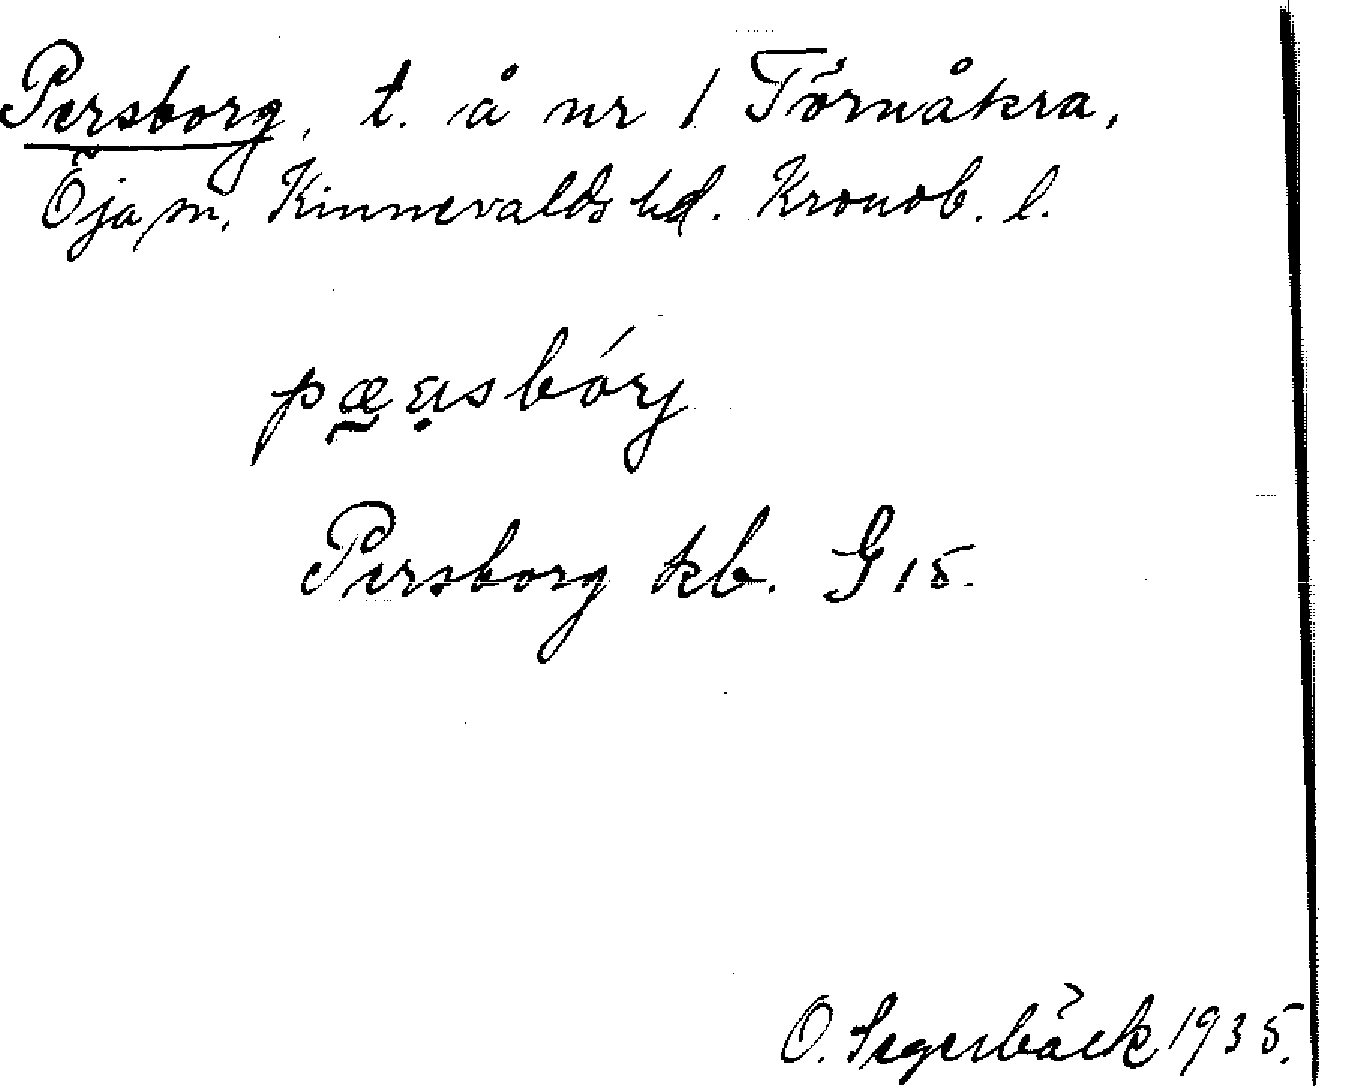 Persborg, t. å nr 1 Törnåkra,
Öja sn, Kinnevalds hd. Kronob. l.
Persborg kb. G 15.
O. Segerbäck 1935.